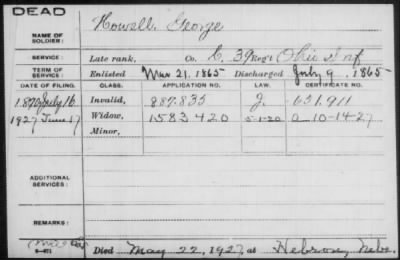 DEAD
NAME OF SOLDIER: Howell George
SERVICE: Late rank, Co. C. 39 Reg't Ohio Inf
TERM OF SERVICE: Enlisted Mar 21. 1865 Discharged July 9. 1865
DATE OF FILING. CLASS. APPLICATION NO. LAW. CERTIFICATE NO.
July 16. Invalid, 887.835 J. 651.911
1927 June 17 Widow, 1583420 5-1-20 a 10-14-27
Minor,
ADDITIONAL SERVICES:
REMARKS:
Died May 22, 1927, at Hebron, Nebr.